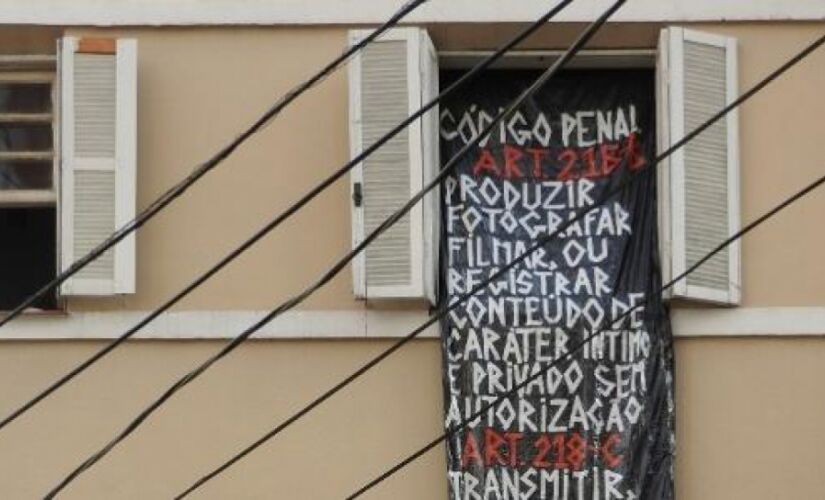 CÓDIGO PENAL
ART. 216-B
PRODUZIR
FOTOGRAFAR
FILMAR, OU
REGISTRAR
CONTEÚDO DE
CARÁTER ÍNTIMO
E PRIVADO SEM
AUTORIZAÇÃO
ART. 218-C
TRANSMITIR,